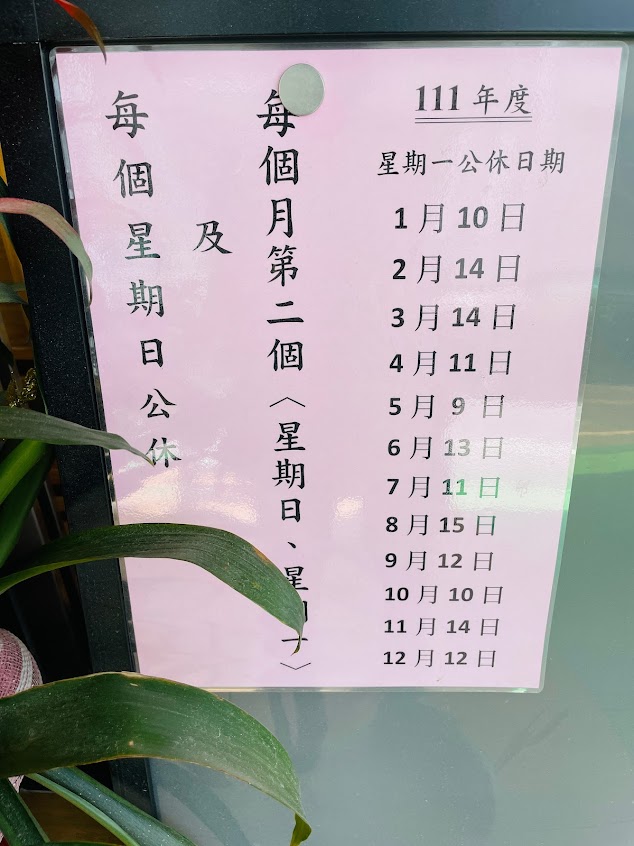 111 年度
星期一公休日期
1 月 10 日
2 月 14 日
3 月 14 日
4 月 11 日
5 月 9 日
6 月 13 日
7 月 11 日
8 月 15 日
9 月 12 日
10 月 10 日
11 月 14 日
12 月 12 日
每個月第二個〈星期日、星期一〉
及
每個星期日公休